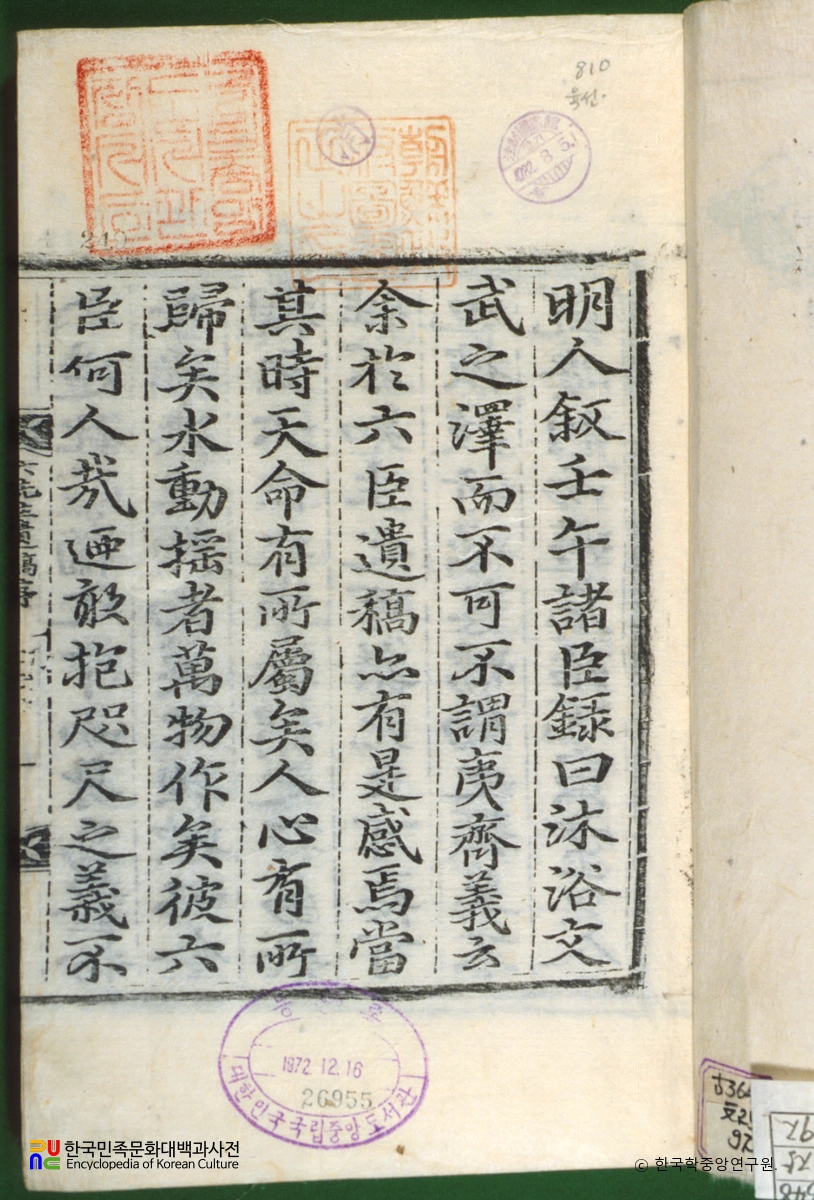 明人叙壬午諸臣録曰沐浴文
武之澤而不可不謂夷齊義云
余於六臣遺稿亦有是感焉當
其時天命有所屬矣人心有所
歸矣水動揺者萬物作矣彼六
臣何人㦲廼敢抱咫尺之義不
810
육선.
1972. 12. 16
26955
대한민국국립중앙도서관
한국민족문화대백과사전
Encyclopedia of Korean Culture
© 한국학중앙연구원